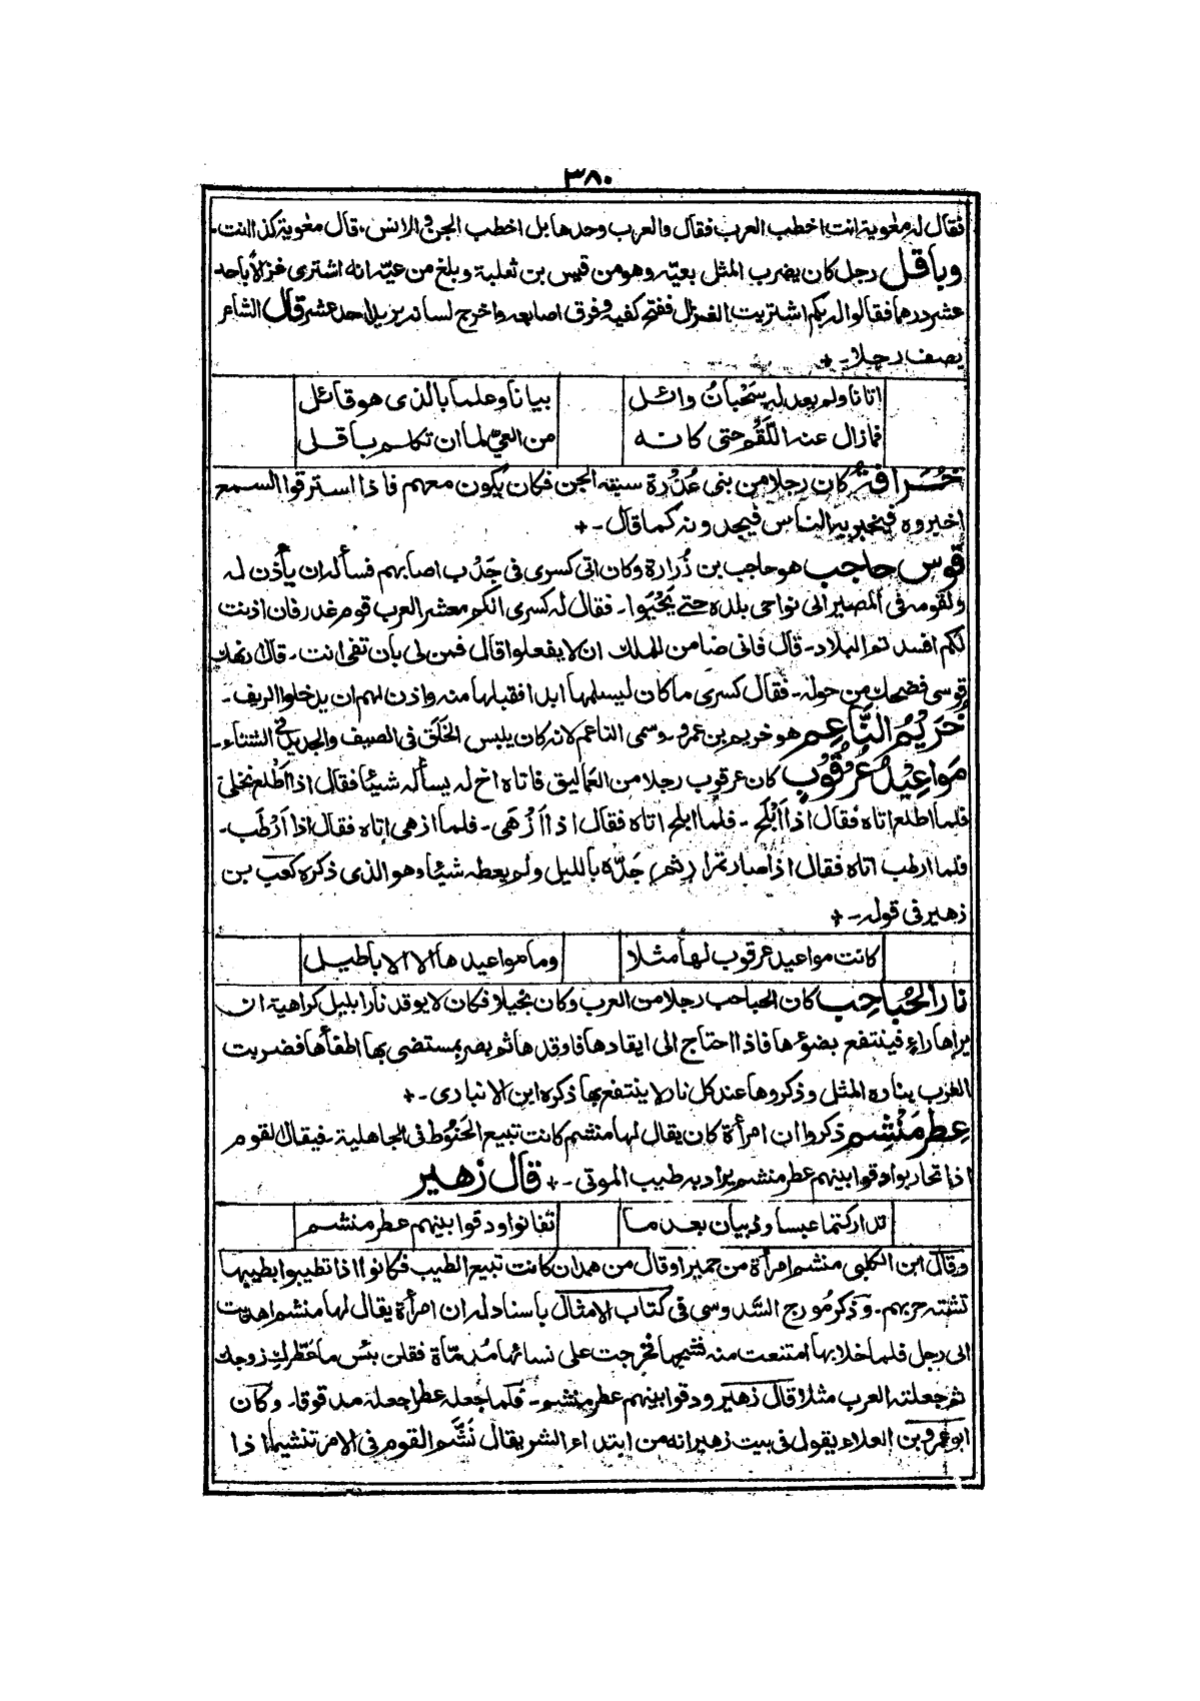 ٣٨٠
فقال له معٰوية انت اخطب العرب فقال والعرب وحدها بل اخطب الجن والانس. قال معٰوية كذا انت۔
وباقل رجل كان يضرب المثل بعيّه وهو من قيس بن ثعلبة وبلغ من عيّه انه اشترى غزالاً باحد
عشر درهما فقالوا له بكم اشتريت الغزال ففتح كفيه وفرق اصابعه واخرج لسانه يريد احد عشر قال الشاعر
يصف رجلا۔+
اتانا ولم يعد له سَحْبانُ وائل بيانا وعلما بالذى هو قائل
فما زال عنه اللَّقْمُ حتى كانه من العيّ لما ان تكلم باقل
خُرافة كان رجلا من بنى عُذْرة سبته الجن فكان يكون معهم فاذا استرقوا السمع
اخبروه فيخبر به الناس فيجدونه كما قال۔+
قوس حاجب هو حاجب بن زُرارة وكان اتى كسرى فى جَدْب اصابهم فسأله ان يأذن له
ولقومه فى المصير الى نواحى بلده حتے يَحْيَوا۔ فقال له كسرى انكم معشر العرب قوم غدر فان اذنت
لكم افسدتم البلاد۔ قال فانى ضامن للملك ان لا يفعلوا قال فمن لى بان تفى انت۔ قال ارهنك
قوسى فضحك من حوله۔ فقال كسرى ما كان ليسلمها ابدا فقبلها منه واذن لهم ان يدخلوا الريف۔
خُرَيْمُ النَّاعِم هو خريم بن عمرو۔ وسمى الناعم لانه كان يلبس الخَلَق فى الصيف والجديد فى الشتاء۔
مَواعِيْدُ عُرْقُوْبٍ كان عرقوب رجلا من العماليق فاتاه اخ له يسأله شيئا فقال اذا اَطْلَع نخلى
فلما اطلع اتاه فقال اذا اَبْلَحَ۔ فلما ابلح اتاه فقال اذا اَزْهَى۔ فلما ازهى اتاه فقال اذا اَرْطَب۔
فلما ارطب اتاه فقال اذا صار تمرا (ثم) جَدَّه بالليل ولم يعطه شيئا وهو الذى ذكره كعب بن
زهير فى قوله۔+
كانت مواعيد عرقوب لها مثلا وما مواعيدها الا الاباطيل
نار الحُباحِب كان الحباحب رجلا من العرب وكان بخيلا فكان لا يوقد نارا بليل كراهية ان
يراها راءٍ فينتفع بضوءها فاذا احتاج الى ايقادها فاوقدها ثم بصر بمستضئ بها اطفأها فضربت
العرب بناره المثل وذكروها عند كل نار لا ينتفع بها ذكره ابن الانبارى۔+
عِطر مَنْشِم ذكروا ان امرأة كان يقال لها منشم كانت تبيع الحَنُوط فى الجاهلية۔ فيقال لقوم
اذا تحاربوا دقوا بينهم عطر منشم يراد به طيب الموتى۔+ قال زهير
تداركتما عبسا وذبيان بعد ما تفانوا ودقوا بينهم عطر منشم
وقال ابن الكلبى منشم امرأة من حمير او قال من همدان كانت تبيع الطيب فكانوا اذا تطيبوا بطيبها
تشتد حربهم۔ وذكر مُورج السَّدوسى فى كتاب الامثال باسناد له ان امرأة يقال لها منشم اهديت
الى رجل فلما خلا بها امتنعت منه فشجها فخرجت على نسائها مُدمّاة فقلن بئس ما عَطّركِ زوجك
ثم جعلته العرب مثلا قال زهير ودقوا بينهم عطر منشم۔ فلما جعله عطرا جعله مدقوقا۔ وكان
ابو عمرو بن العلاء يقول فى بيت زهير انه من ابتداء الشر يقال نَشَّم القوم فى الامر تنشيما اذا